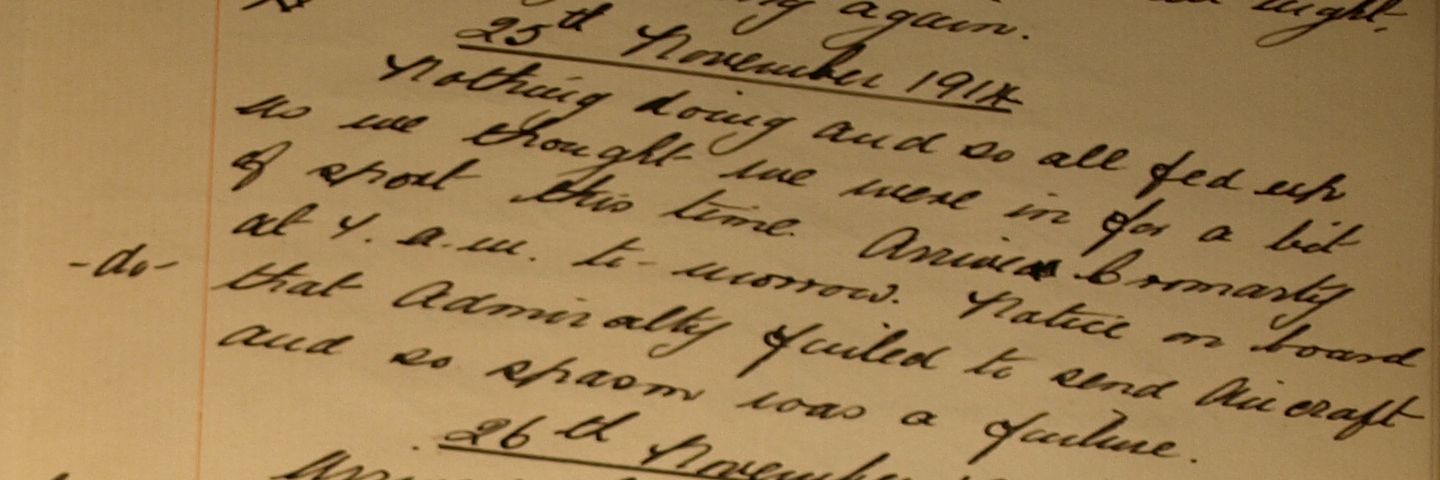 again. night.
25th November 1914
Nothing doing and so all fed up
as we thought we were in for a bit
of sport this time. Arrive Cromarty
at 4. a.m. to-morrow. Notice on board
-do- that Admiralty failed to send Air craft
and so spasm was a failure.
26th November